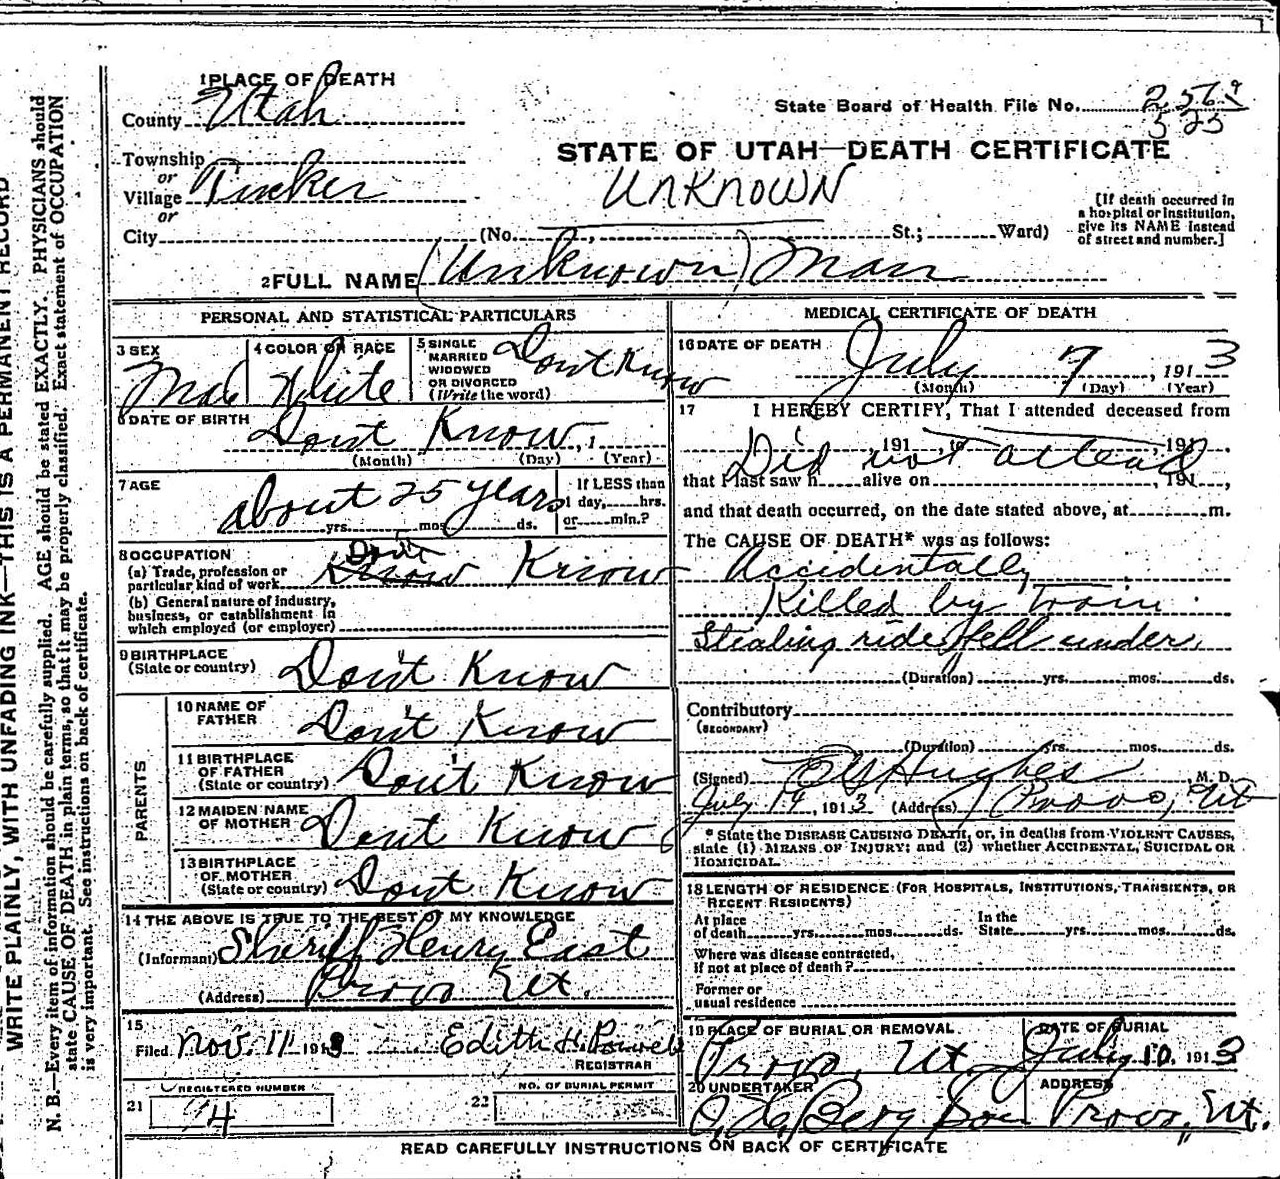 WRITE PLAINLY, WITH UNFADING INK—THIS IS A PERMANENT RECORD
N. B.—Every item of information should be carefully supplied. AGE should be stated EXACTLY. PHYSICIANS should
state CAUSE OF DEATH in plain terms, so that it may be properly classified. Exact statement of OCCUPATION
is very important. See instructions on back of certificate.
1 PLACE OF DEATH
County Utah
Township
or
Village Tucker
or
City (No. St.; Ward)
State Board of Health File No. 256
525
STATE OF UTAH—DEATH CERTIFICATE
UNKNOWN
[If death occurred in
a hospital or institution,
give its NAME instead
of street and number.]
2 FULL NAME (Unknown) Man
PERSONAL AND STATISTICAL PARTICULARS
3 SEX
Male
4 COLOR OR RACE
White
5 SINGLE
MARRIED
WIDOWED
OR DIVORCED
(Write the word)
Dont Know
6 DATE OF BIRTH
Dont Know
(Month) (Day) (Year)
7 AGE
about 25 years
yrs. mos. ds.
If LESS than
1 day, hrs.
or min.?
8 OCCUPATION
(a) Trade, profession or
particular kind of work
Know Dont Know
(b) General nature of industry,
business, or establishment in
which employed (or employer)
9 BIRTHPLACE
(State or country) Don't Know
PARENTS
10 NAME OF
FATHER Don't Know
11 BIRTHPLACE
OF FATHER
(State or country) Don't Know
12 MAIDEN NAME
OF MOTHER Dont Know
13 BIRTHPLACE
OF MOTHER
(State or country) Dont Know
14 THE ABOVE IS TRUE TO THE BEST OF MY KNOWLEDGE
(Informant) Sheriff Henry East
(Address) Provo Ut.
15
Filed Nov. 11 1913 Edith H. Powell
REGISTRAR
REGISTERED NUMBER
21 94
NO. OF BURIAL PERMIT
22
MEDICAL CERTIFICATE OF DEATH
16 DATE OF DEATH
July 7, 1913
(Month) (Day) (Year)
17 I HEREBY CERTIFY, That I attended deceased from
191 to 191
Did not attend
that I last saw h alive on , 191 ,
and that death occurred, on the date stated above, at m.
The CAUSE OF DEATH* was as follows:
Accidentally
Killed by train
Stealing ride fell under
(Duration) yrs. mos. ds.
Contributory
(SECONDARY)
(Duration) yrs. mos. ds.
(Signed) Hughes , M. D.
July 14, 1913 (Address) Provo, Ut
* State the DISEASE CAUSING DEATH, or, in deaths from VIOLENT CAUSES,
state (1) MEANS OF INJURY; and (2) whether ACCIDENTAL, SUICIDAL OR
HOMICIDAL.
18 LENGTH OF RESIDENCE (FOR HOSPITALS, INSTITUTIONS, TRANSIENTS, OR
RECENT RESIDENTS)
At place
of death yrs. mos. ds.
In the
State yrs. mos. ds.
Where was disease contracted,
if not at place of death?
Former or
usual residence
19 PLACE OF BURIAL OR REMOVAL
Provo, Ut.
DATE OF BURIAL
July 10, 1913
20 UNDERTAKER
Berg Son
ADDRESS
Provo, Ut.
READ CAREFULLY INSTRUCTIONS ON BACK OF CERTIFICATE